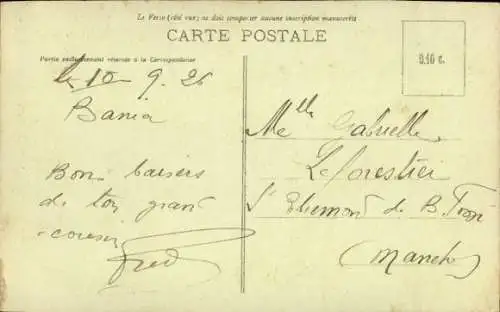 Le Verso (côté vue) ne doit comporter aucune inscription manuscrite
CARTE POSTALE
Partie exclusivement réservée à la Correspondance
0.10 c.
le 10-9.26
Bania
Bons baisers
de ton grand
cousin
Fred
Melle Gabrielle
Leforestier
St de B.
(Manche)